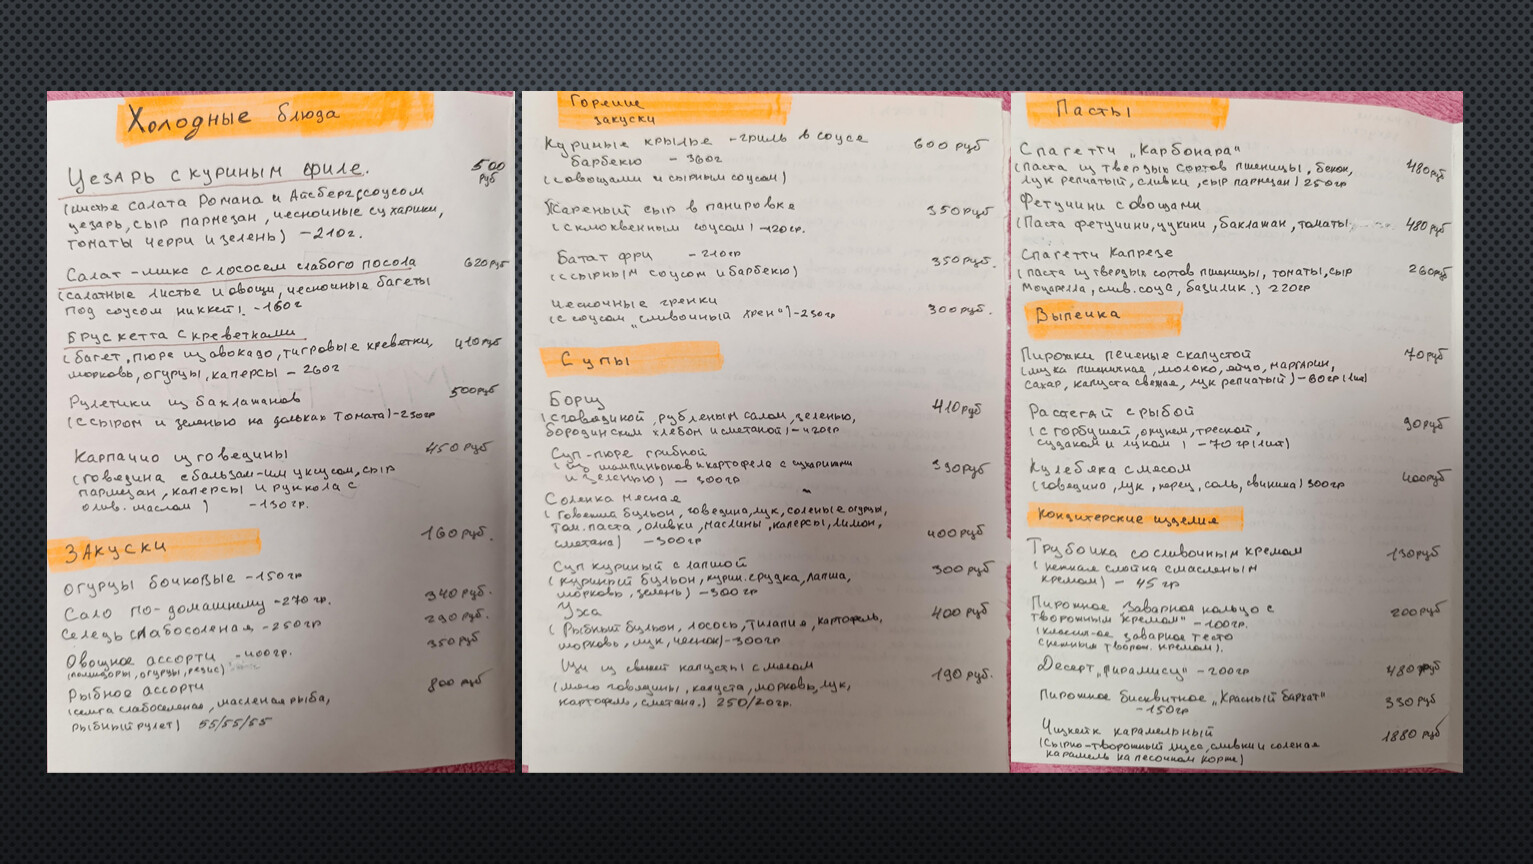 Холодные блюда
Цезарь с куриным филе. 500 руб
(листье салата Романа и Айсберг, соусом
цезарь, сыр пармезан, чесночные сухарики,
томаты черри и зелень) – 210г.
Салат-микс с лососем слабого посола 620руб
(салатные листье и овощи, чесночные багеты
под соусом никкей). -160г
Брускетта с креветками 410руб
(багет, пюре из авокадо, тигровые креветки,
морковь, огурцы, каперсы – 260г
Рулетики из баклажанов 500руб
(с сыром и зеленью на дольках томата) -230гр
Карпачио из говедины 450 руб
(говедина с бальзам-им уксусом, сыр
пармезан, каперсы и руккола с
олив. маслом) -130гр.
Закуски
160 руб.
огурцы бочковые -150гр
Сало по-домашнему -270гр. 340руб.
Селедь слабосоленая -250гр 290руб.
Овощное ассорти -400гр. 350руб
(помидоры, огурцы, редис)
Рыбное ассорти 800 руб
(семга слабосоленая, масленая рыба,
рыбный рулет) 55/55/55
Горечие
закуски
Куриные крылье -гриль в соусе 600 руб
барбекю – 360г
(с овощами и сырным соусом)
Жареный сыр в панировке 350руб
(с клюквенным соусом) -120гр.
Батат фри -210гр 350руб.
(с сырным соусом и барбекю)
чесночные гренки 300руб.
(с соусом „сливочный хрен") -230гр
Супы
Борщ 410руб
(с говядиной, рубленым салом, зеленью,
бородинским хлебом и сметаной) -420гр
Суп-пюре грибной 330руб
(из шампиньонов и картофеля с сухариками
и зеленью) – 300гр
Солянка мясная
(говежий бульон, говедина, лук, соленые огурцы,
том. паста, оливки, маслины, каперсы, лимон,
сметана) -300гр 400руб
Суп куриный с лапшой 300 руб
(куриный бульон, курин. грудка, лапша,
морковь, зелень) -300гр
Уха 400 руб
(Рыбный бульон, лосось, тилапия, картофель,
морковь, лук, чеснок) -300гр
Щи из свежей капусты с мясом 190 руб.
(мясо говядины, капуста, морковь, лук,
картофель, сметана.) 250/20гр.
Пасты
Спагетти „Карбонара" 480руб
(паста из твердых сортов пшеницы, бекон,
лук репчатый, сливки, сыр пармезан) 250гр
Фетучини с овощами
(паста фетучини, цукини, баклажан, томаты 480руб
Спагетти Капрезе 260руб
(паста из твердых сортов пшеницы, томаты, сыр
моцарелла, слив. соус, базилик.) 220гр
Выпечка
Пирожки печеные с капустой 70руб
(мука пшеничная, молоко, яйцо, маргарин,
сахар, капуста свежая, лук репчатый) -60гр (1шт)
Растегай с рыбой 90руб
(с горбушей, окунем, треской,
судаком и луком) -70гр (1шт)
Кулебяка с мясом
(говедино, лук, перец, соль, свинина) 300гр 400руб
кондитерские изделия
Трубочка со сливочным кремом 130руб
(нежная слойка с масленым
кремом) – 45гр
Пирожное „Заварное кольцо с 200руб
творожным кремом" -100гр.
(классич-ое заварное тесто
с нежным творож. кремом).
Десерт „Тирамису" -200гр 480руб
Пирожное бисквитное „Красный бархат" 330руб
-150гр
Чизкейк карамельный 1880 руб
(сырно-творожный мусс, сливки и соленая
карамель на песочном корже)